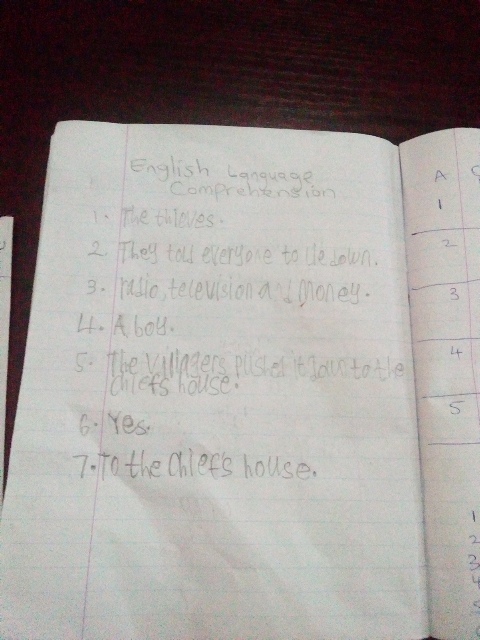 English Language
Comprehension
1. The thieves.
2 They told everyone to lie down.
3. radio, television and money.
4. A boy.
5. The villagers pushed it down to the
chief's house.
6. Yes.
7. To the chief's house.
A
1
2
3
4
5
1
2
3
4
5